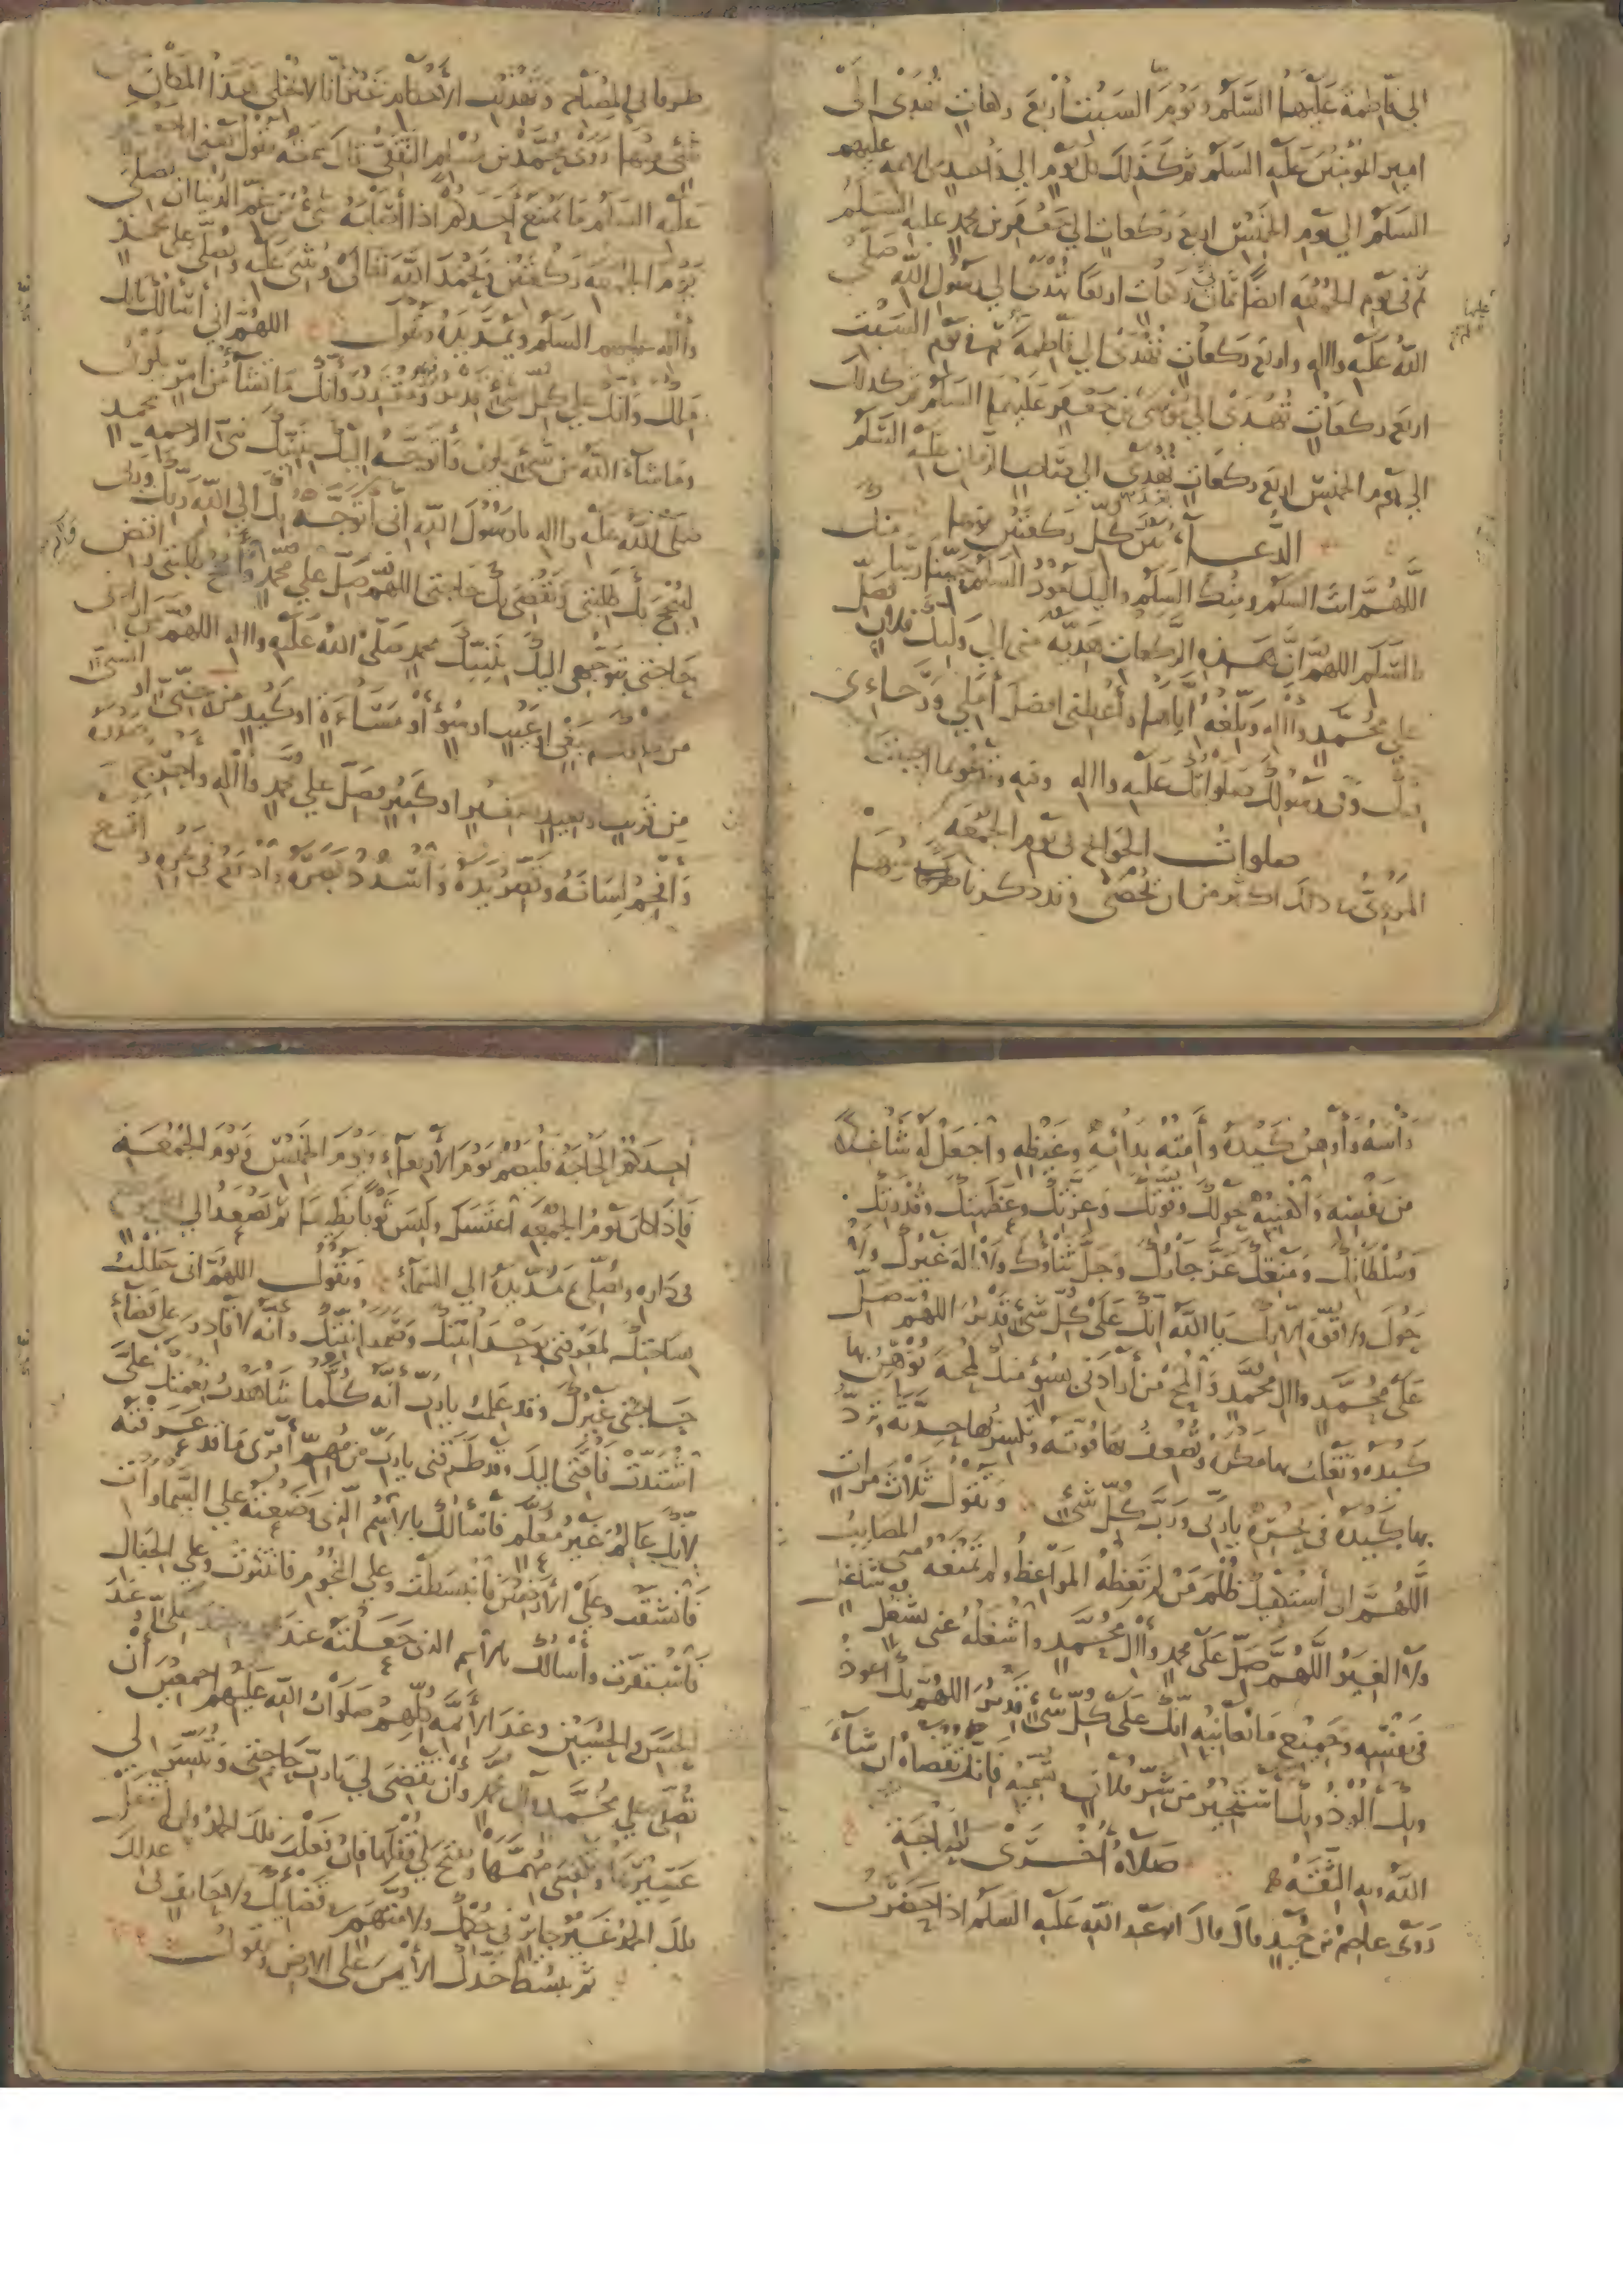 الي فاطمة عليها السلم ويوم السبت اربع ركعات تهدى الى
امير المؤمنين عليه السلم ثم كذلك كل يوم الي واحد من الائمه عليهم
السلم الي يوم الخميس اربع ركعات الي جعفر بن محمد عليه السلم
ثم في يوم الجمعه ايضا ثماني ركعات اربعا تهدى الي رسول الله صلى
الله عليه واله واربع ركعات تهدى الي فاطمة ثم في يوم السبت
عليها السلم
اربع ركعات تهدى الي موسى بن جعفر عليهما السلم ثم كذلك
الي يوم الخميس اربع ركعات تهدى الي صاحب الزمان عليه السلم
الدعاء بين كل ركعتين منها
اللهم انت السلم ومنك السلم واليك يعود السلم حينا ربنا منك
بالسلم اللهم ان هذه الركعات هدية مني الي وليك فلان فصل
على محمد واله وبلغه اياها واعطني افضل املي ورجاءي
فيك وفي رسولك صلواتك عليه واله وفيه وتدعو بما احببت
صلوات الحوائج في يوم الجمعه
المروي في ذلك اكثر من ان تحصى وقد ذكرنا منها
طرفا في المصباح وتهذيب الاحكام غير انا لا نخلي هذا المكان من
شئ منها روى محمد بن مسلم الثقفي قال سمعته يقول يعني ابا جعفر
عليه السلام ما يمنع احدكم اذا اصابه شئ من غم الدنيا ان يصلي
يوم الجمعه ركعتين ويحمد الله تعالى ويثني عليه ويصلي على محمد
واله عليهم السلم ويمد يده ويقول اللهم اني اسالك بانك
ملك وانك على كل شئ قدير مقتدر وانك ما تشاء من امر يكون
وما شاء الله من شئ يكون واتوجه اليك بنبيك نبي الرحمه محمد
صلى الله عليه واله يا رسول الله اني اتوجه بك الى الله ربك وربي
لينجح بك طلبتي وتقضى بك حاجتي اللهم صل علي محمد وانجح طلبتي واقض
حاجتي بتوجهي اليك بنبيك محمد صلى الله عليه واله اللهم من ارادني
من خلقك ببغي او عيب او سوء او مساءة او كيد من جني او انسي
من قريب او بعيد صغير او كبير فصل علي محمد واله واحرج صدره
وافحم لسانه وقصر يده واسدد بصره وادفع في نحره واقمع
راسه واوهن كيده وامته بدائه وغيظه واجعل له شاغلا
من نفسه واكفنيه بحولك وقوتك وعزتك وعظمتك وقدرتك
وسلطانك ومنعتك عز جارك وجل ثناؤك ولا اله غيرك ولا
حول ولا قوة الا بك يا الله انك على كل شئ قدير اللهم صل
على محمد وال محمد والمح من ارادني بسوء منك لمحة توهن بها
كيده وتقلب بها مكره وتضعف بها قوته وتكسر بها حدته وترد
بها كيده في نحره يا ربي ورب كل شئ وتقول ثلاث مرات
اللهم اني استكفيك ظلم من لم تعظه المواعظ ولم تمنعه مني المصايب
ولا الغير اللهم صل على محمد وال محمد واشغله عني بشغل شاغل
في نفسه وجميع ما يعانيه انك على كل شئ قدير اللهم بك اعوذ
وبك الوذ وبك استجير من شر فلان تسميه فانك تكفاه ان شاء
الله وبه الثقه
صلاة اخرى للحاجة
روى عاصم بن حميد قال قال ابو عبد الله عليه السلم اذا حضرت
احدكم الحاجة فليصم يوم الاربعاء ويوم الخميس ويوم الجمعة
فاذا كان يوم الجمعه اغتسل ولبس ثوبا نظيفا ثم يصعد الي
في داره ويصلي ثم يمد يده الي السماء ويقول اللهم اني حللت
بساحتك لمعرفتي بوحدانيتك وصمدانيتك وانه لا قادر على قضاء
حاجتي غيرك وقد علمت يا رب انه كلما شاهدت نعمتك علي
اشتدت فاقتي اليك وقد طرقني يا رب من مهم امري ما قد عرفته
لانك عالم غير معلم فاسالك بالاسم الذي وضعته علي السماوات
فانشقت وعلى الارضين فانبسطت وعلي النجوم فانتثرت وعلي الجبال
فاستقرت واسالك بالاسم الذي جعلته عند محمد وعند علي وعند
الحسن والحسين وعند الائمة كلهم صلوات الله عليهم اجمعين ان
تصلي علي محمد وال محمد وان تقضي لي يا رب حاجتي وتيسر لي
عسيرها وتكفيني مهمها وتفتح لي قفلها فان فعلت فلك الحمد وان لم تفعل
فلك الحمد غير جائر في حكمك ولا متهم في قضائك ولا حائف في عدلك
ثم يبسط خدك الايمن على الارض وتقول